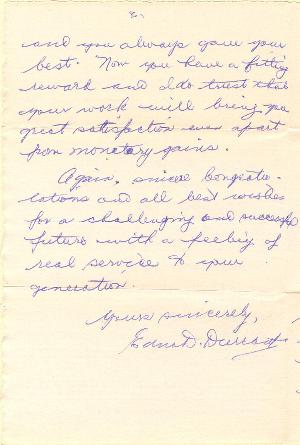 and you always gave your
best. Now you have a fitting
reward and I do trust that
your work will bring you
great satisfaction even apart
from monetary gains.
Again, sincere Congratu-
lations and all best wishes
for a challenging and successful
future with a feeling of
real service to your
generation.
Yours sincerely,
Edna D.